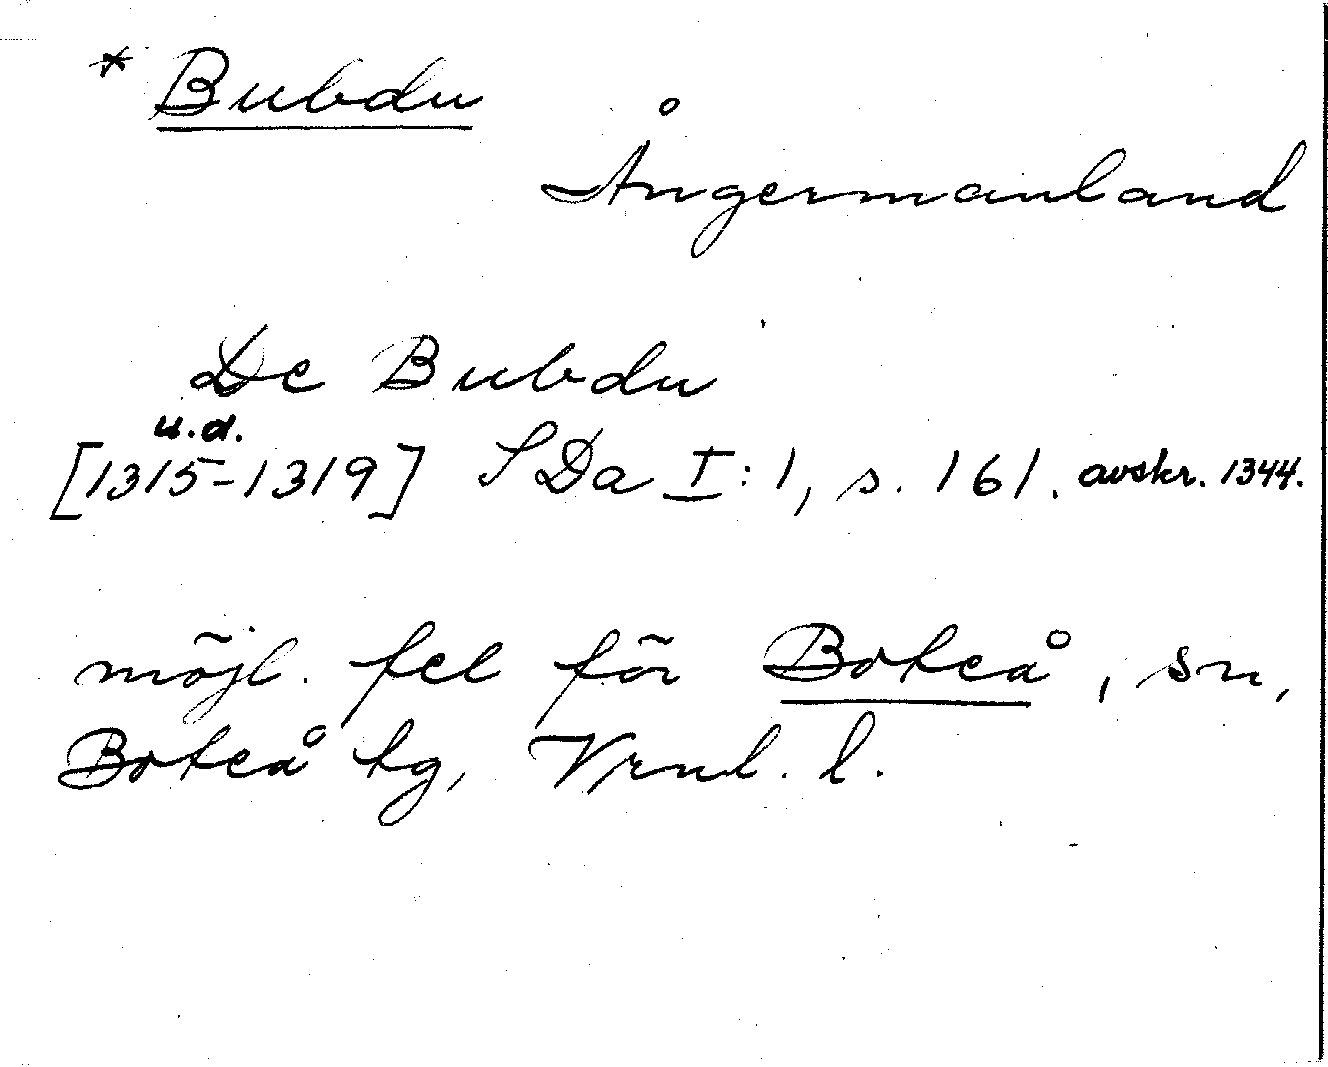 * Bubdu
Ångermanland
De Bubdu
u.d.
[1315-1319] SDa I:1, s. 161. avskr. 1344.
möjl. fel för Boteå, sn,
Boteå tg, Vrnl. l.